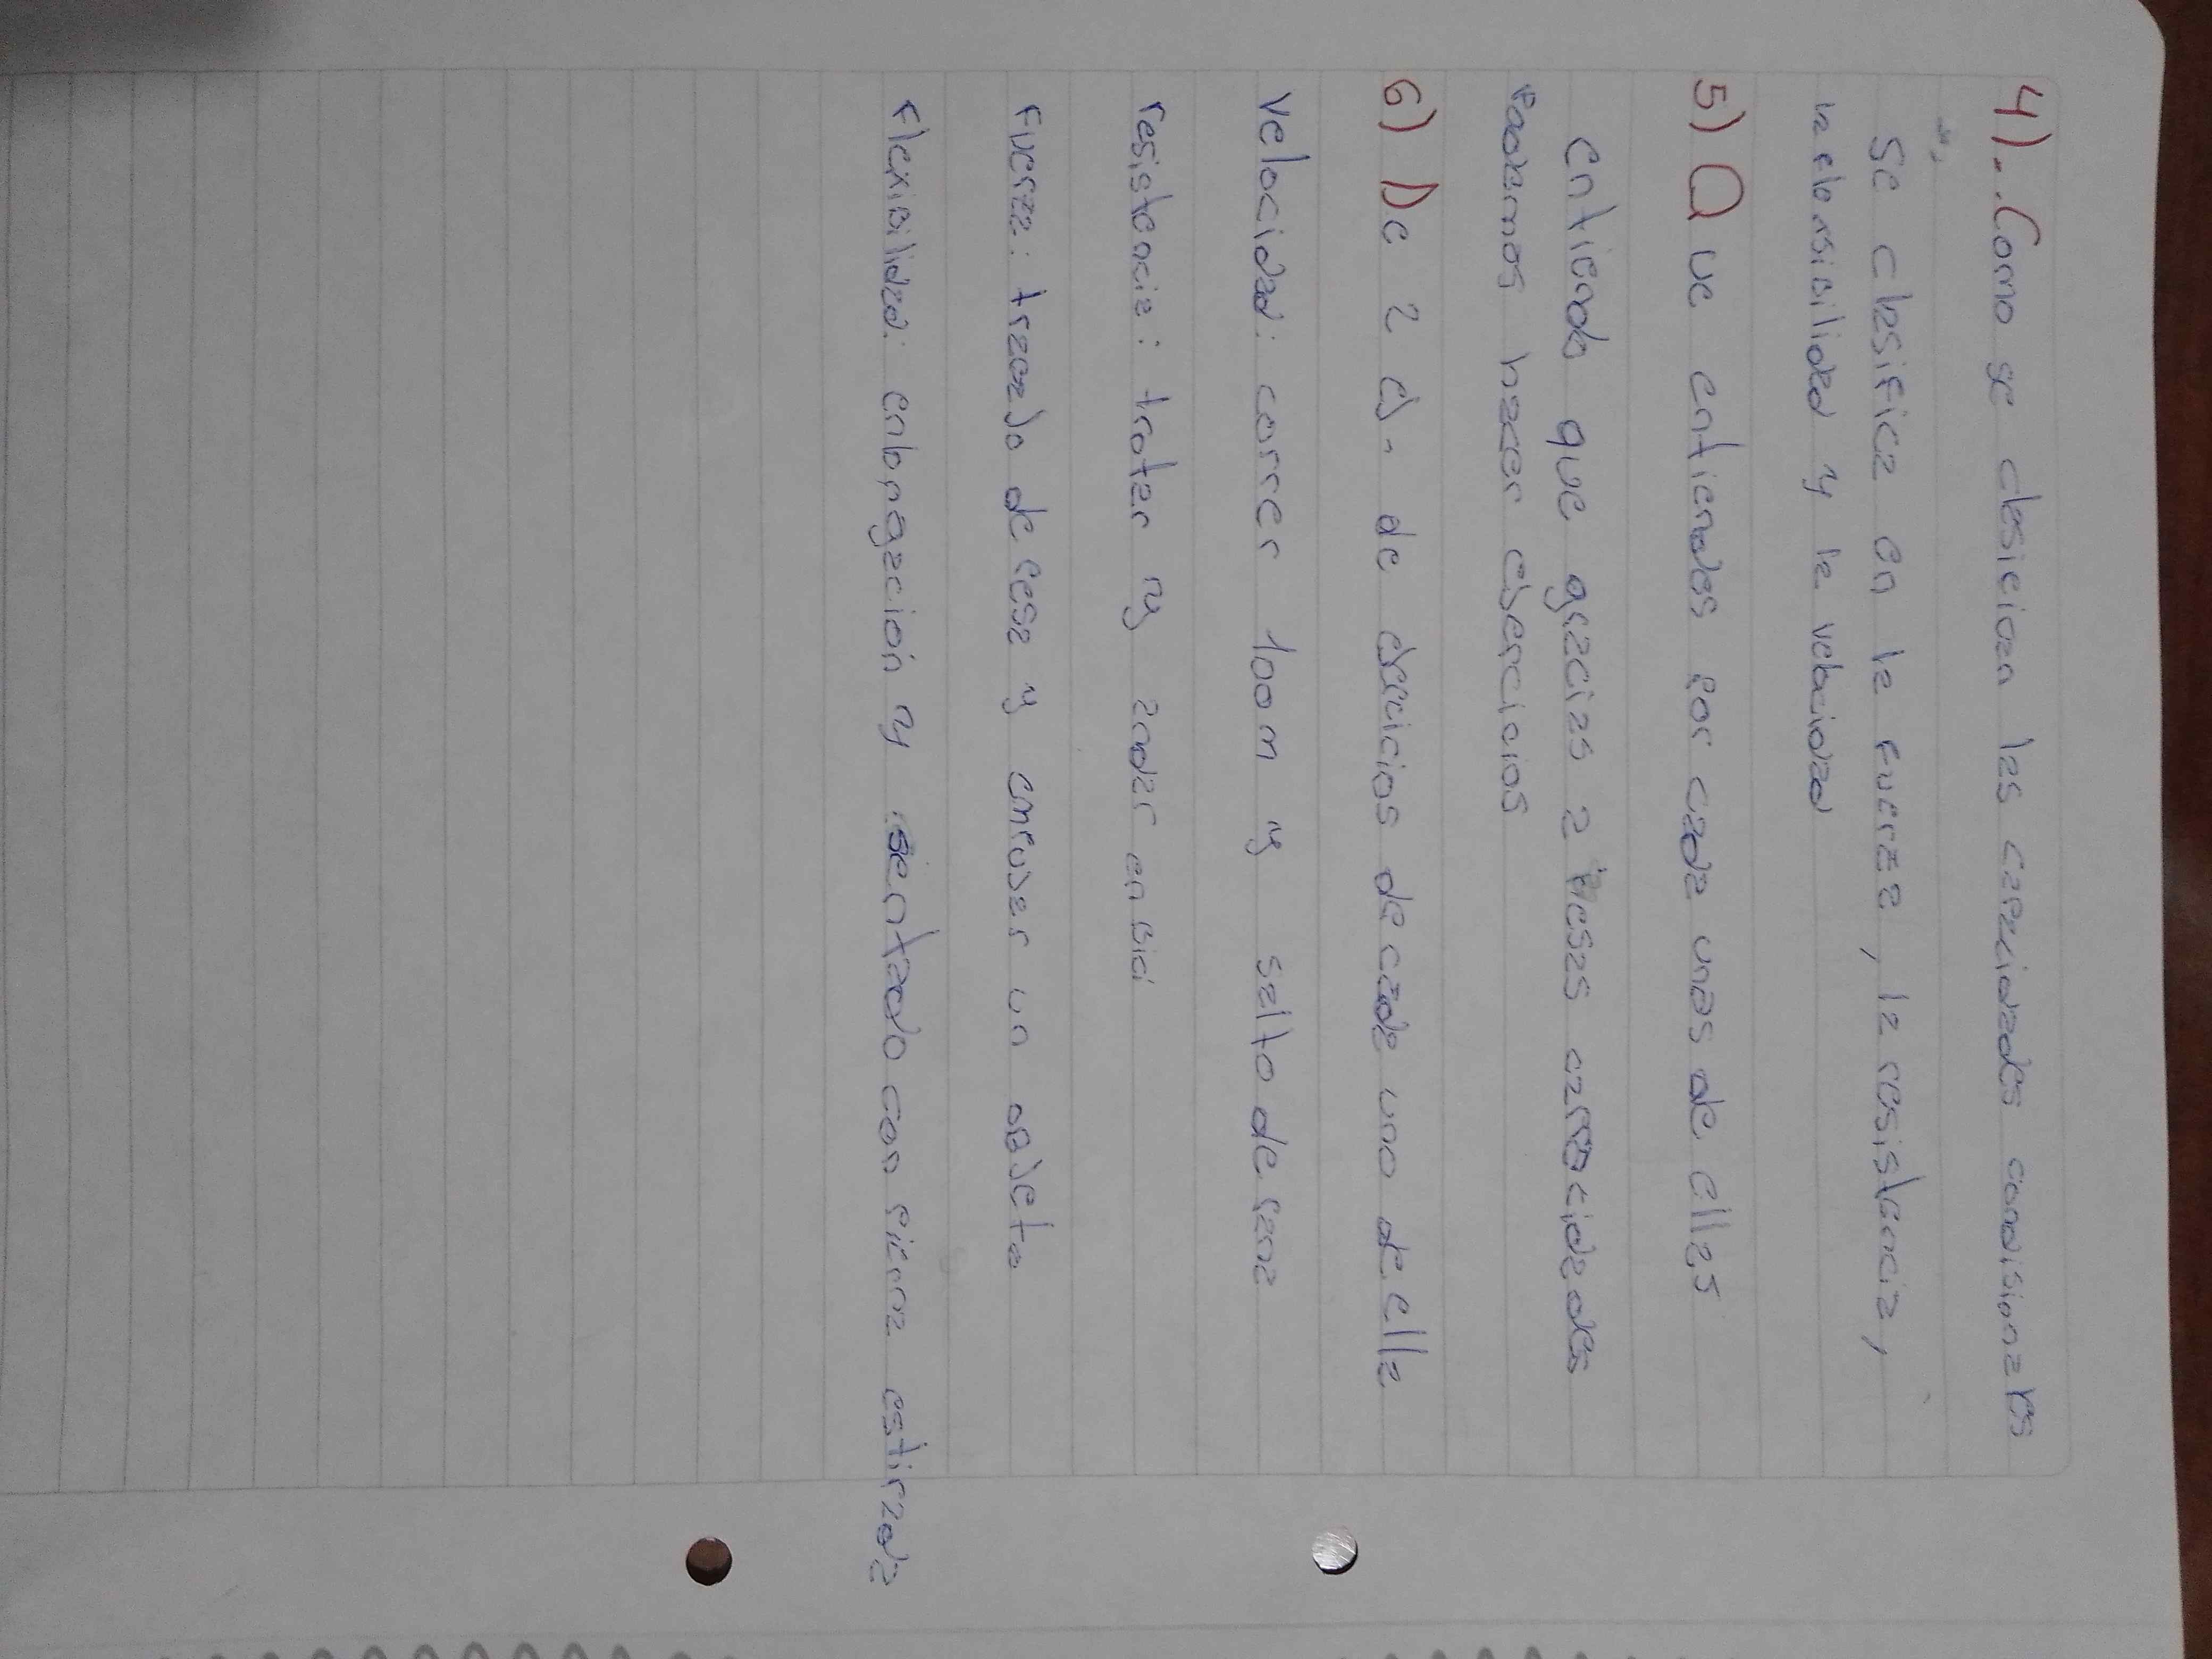 4). Como se clasifican las capacidades condisionales
Se clasifica en la fuerza, la resistencia,
la flexsibilidad y la velocidad
5) Que entiendes por cada unas de ellas
Entiendo que gracias a esas capacidades
Podemos hacer ejercicios
6) De 2 ej. de ejercicios de cada uno de ella
Velocidad: correr 100m y salto de rana
resistencia: trotar y andar en bici
Fuerza: trazado de pesa y empujar un objeto
Flexibilidad: enlongacion y sentado con pierna estirada